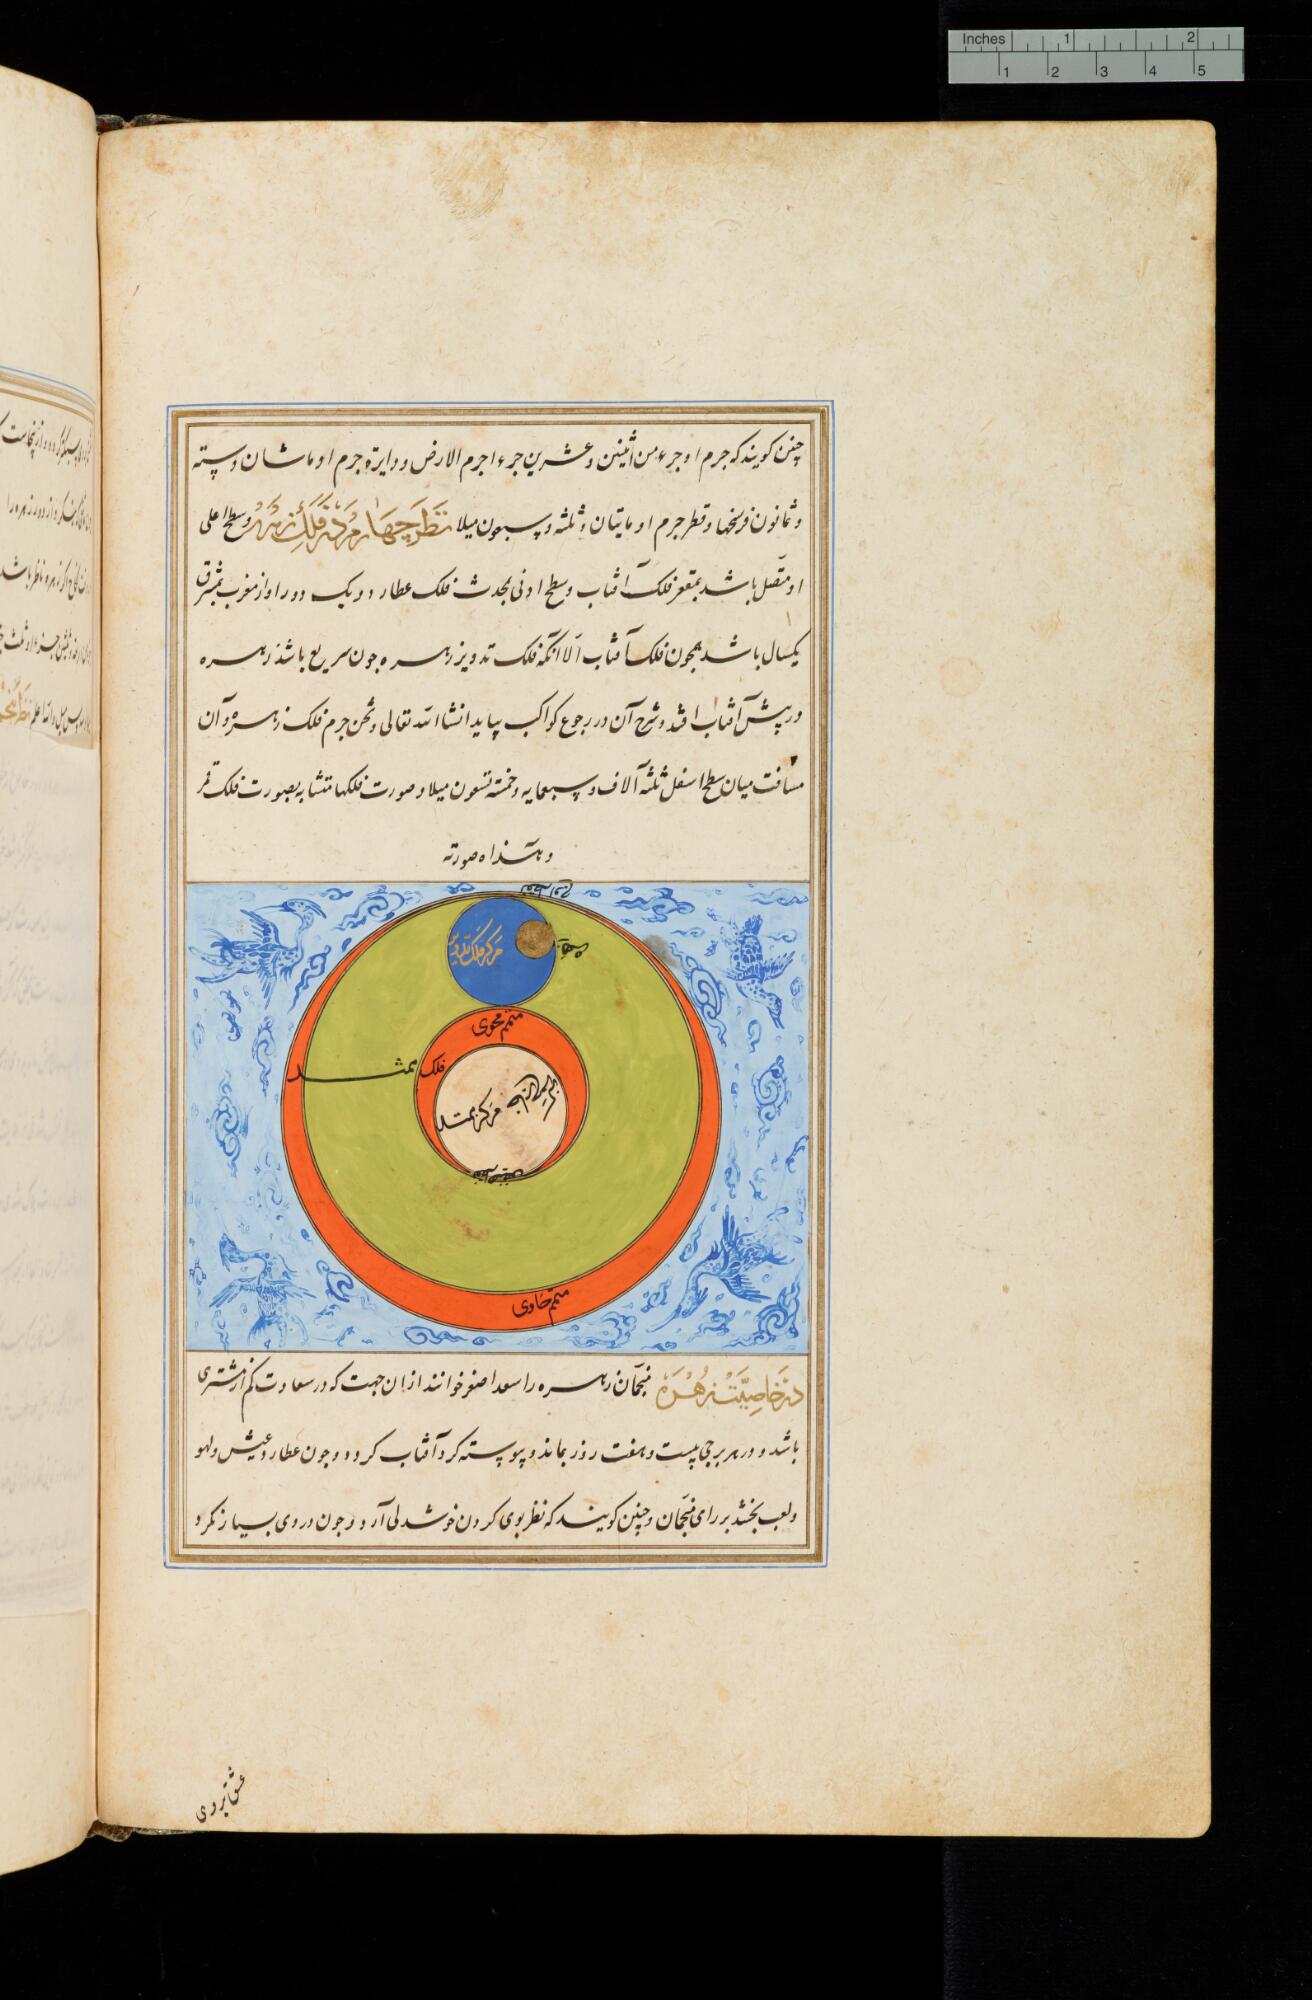 Inches 1 2
1 2 3 4 5
چنین کویند که جرم او جرء من اثنین و عشرین جرء اجرم الارض و دایرة جرم او ماشان و سته
و ثمانون فرسخها و قطر جرم او ماتیان و ثلثه و سبعون میلا نظر چهارم در فلک زهره و سطح اعلی
او متصل باشد بمقعر فلک آفتاب و سطح ادنی بمحدث فلک عطارد و یک دور او از مغرب بمشرق
یکسال باشد همچون فلک آفتاب الا آنکه فلک تدویر زهره جون سریع باشد زهره
در پیش آفتاب افتد و شرح آن در رجوع کواکب بیاید انشا الله تعالی و ثخن جرم فلک زهره و آن
مسافت میان سطح اسفل ثلثه آلاف و سبعمایه و خمسة تسعون میلا و صورت فلکها متشابه بصورت فلک قمر
و هذاه صورته
مرکز فلک تدویر
متمم محوی
فلک ممثد
مرکز ممثد
متمم حاوی
در خاصیت زهره منجمان زهره را سعد اصغر خوانند از ان جهت که در سعادت کم از مشتری
باشد و در هر برجی بیست و هفت روز بماند و پیوسته کرد آفتاب کردد و جون عطارد عیش و لهو
و لعب بخشد بر رای منجمان و چنین کویند که نظر بوی کردن خوشدلی آرد و جون در وی بسیار نکرد
عشق تر دی